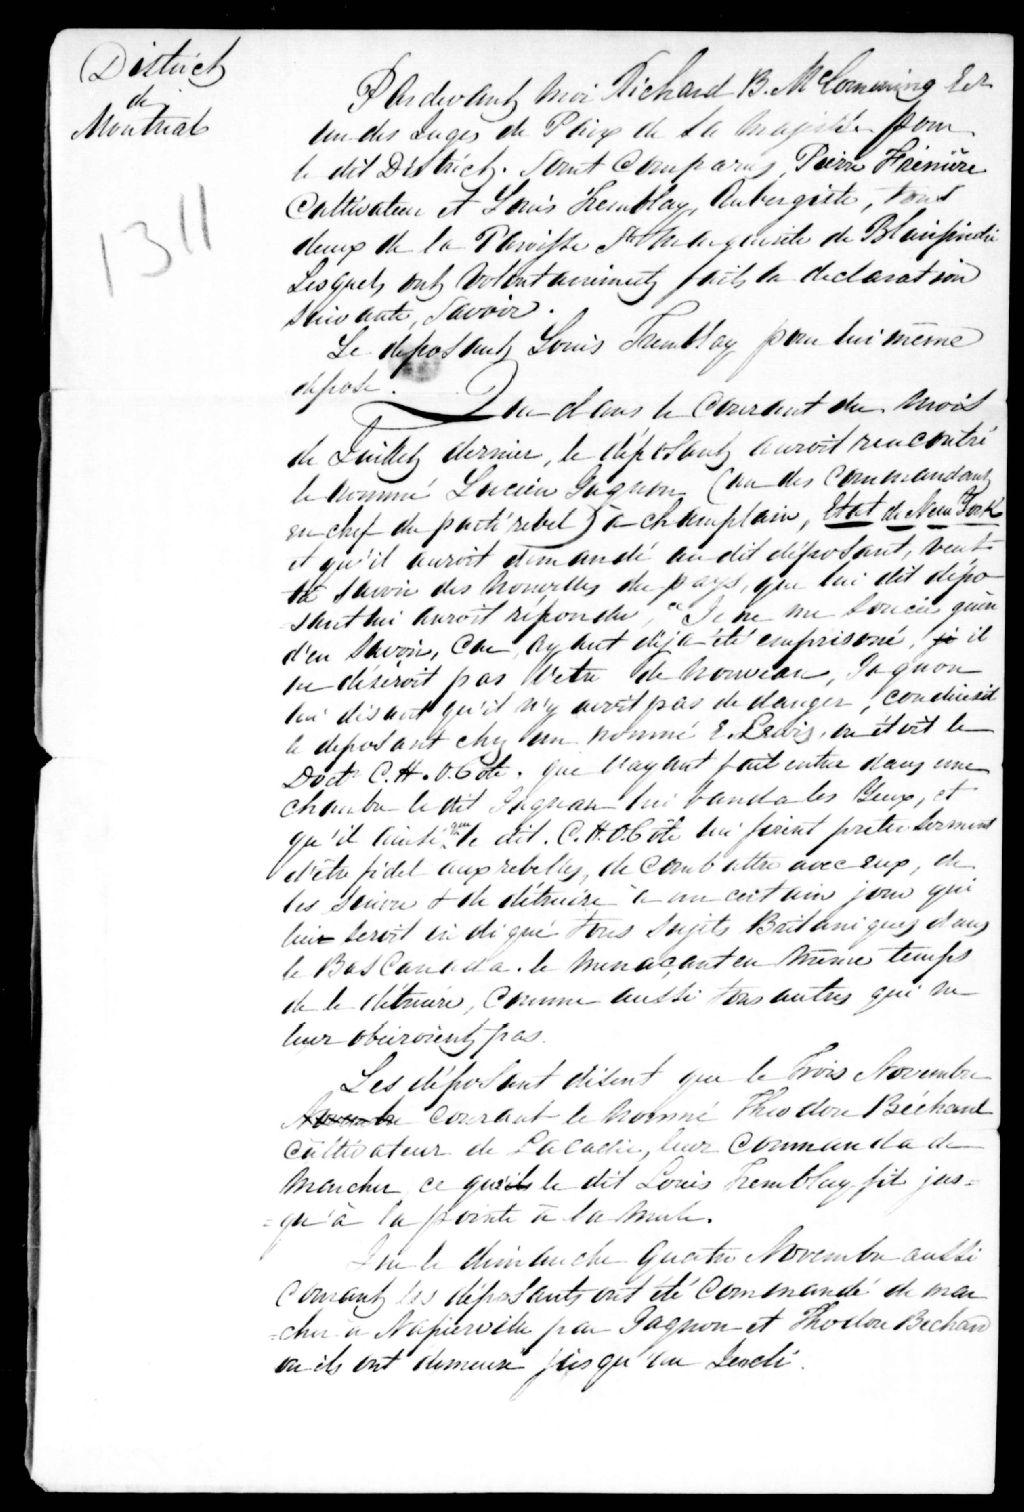 District
de
Montreal
1311
Pardevant moi Richard B. McComming Ecr
un des Juges de Paix de Sa Majesté pour
le dit District. Sont Comparus, Pierre
Cultivateur et Louis Tremblay, Aubergiste, tous
deux de la Paroisse Ste Marguerite de Blairfindie
Lesquels ont volontairement fait la declaration
Suivante, Savoir.
Le deposant Louis Tremblay pour lui même
dépose.
Que dans le Courant du mois
de Juillet dernier, le déposant auroit rencontré
le nommé Lucien Gagnon (un des Commandant
en chef du parti rebel) à Champlain, Etat de New York
et qu'il auroit demandé au dit déposant, veut-
tu savoir des nouvelles du pays, que lui dit dépo
sant lui auroit répondu, "Je ne me soucie
d'en savoir, car ayant déja été emprisoné, je il
ne désiroit pas l'etre de nouveau, Gagnon
lui disant qu'il n'y avoit pas de danger, conduisit
le deposant chez un nommé E. Lewis, ou étoit le
Doctr C.H.O. Coté. que l'ayant fait entrer dans une
chambre le dit Gagnon lui banda les yeux, et
qu'il ainsi que le dit. C.H.O. Côté lui firent preter serment
d'être fidel aux rebelles, de combattre avec eux, de
les suivre & de détruire à un certain jour qui
lui seroit indiqué tous sujets Britaniques dans
le Bas Canada. le menaçant en même temps
de le détruire, comme aussi tous autres qui ne
leur obéiroient pas.
Les déposant disent que le Trois Novembre
Novembre courant le nommé Theodore Béchard
cultivateur de Lacadie, leur commanda de
marcher ce qu'ils le dit Louis Tremblay fit jus=
=qu'à la pointe à la mule.
Que le dimanche quatre Novembre aussi
Courant les déposants ont été commandé de mar
=cher à Napierville par Gagnon et Theodore Bechard
ou ils ont demeuré jusqu'au